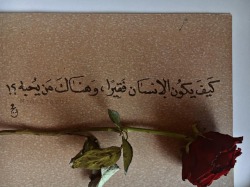 كَيفَ يَكُونُ الإنسَان فَقِيرًا، وَهناكَ مَن يُحبهُ ؟!